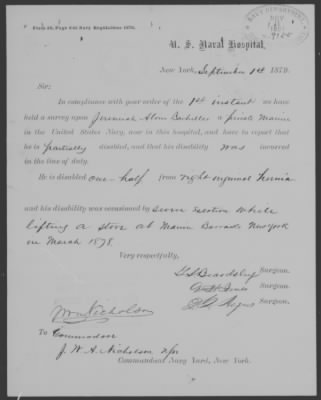 Form 16, Page 210 Navy Regulations 1876.
NAVY DEPARTMENT
NOV
U. S. Naval Hospital,
New York, September 1st 1879.
Sir:
In compliance with your order of the 1st instant we have
held a survey upon Jeremiah Alvin a private Marine
in the United States Navy, now in this hospital, and have to report that
he is partially disabled, and that his disability was incurred
in the line of duty.
He is disabled one-half from right inguinal hernia
and his disability was occasioned by severe exertion while
lifting a stove at Marine Barracks New York
in March 1879.
Very respectfully,
G S Beardsley Surgeon.
Surgeon.
Surgeon.
Nicholson
To Commodore
J. W. A. Nicholson USN
Commandant Navy Yard, New York.